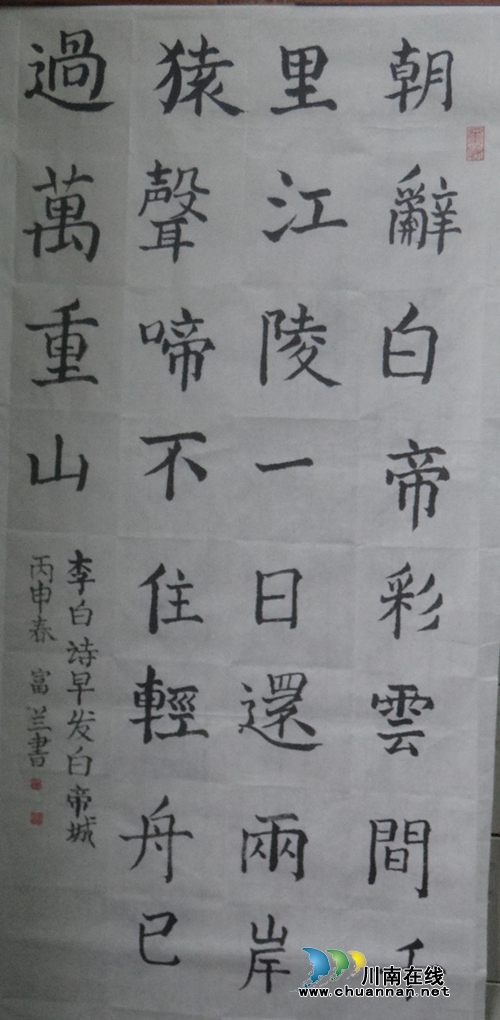 朝辭白帝彩雲間千
里江陵一日還兩岸
猿聲啼不住輕舟已
過萬重山
李白诗早发白帝城
丙申春 富兰書
川南在线
www.chuannan.net